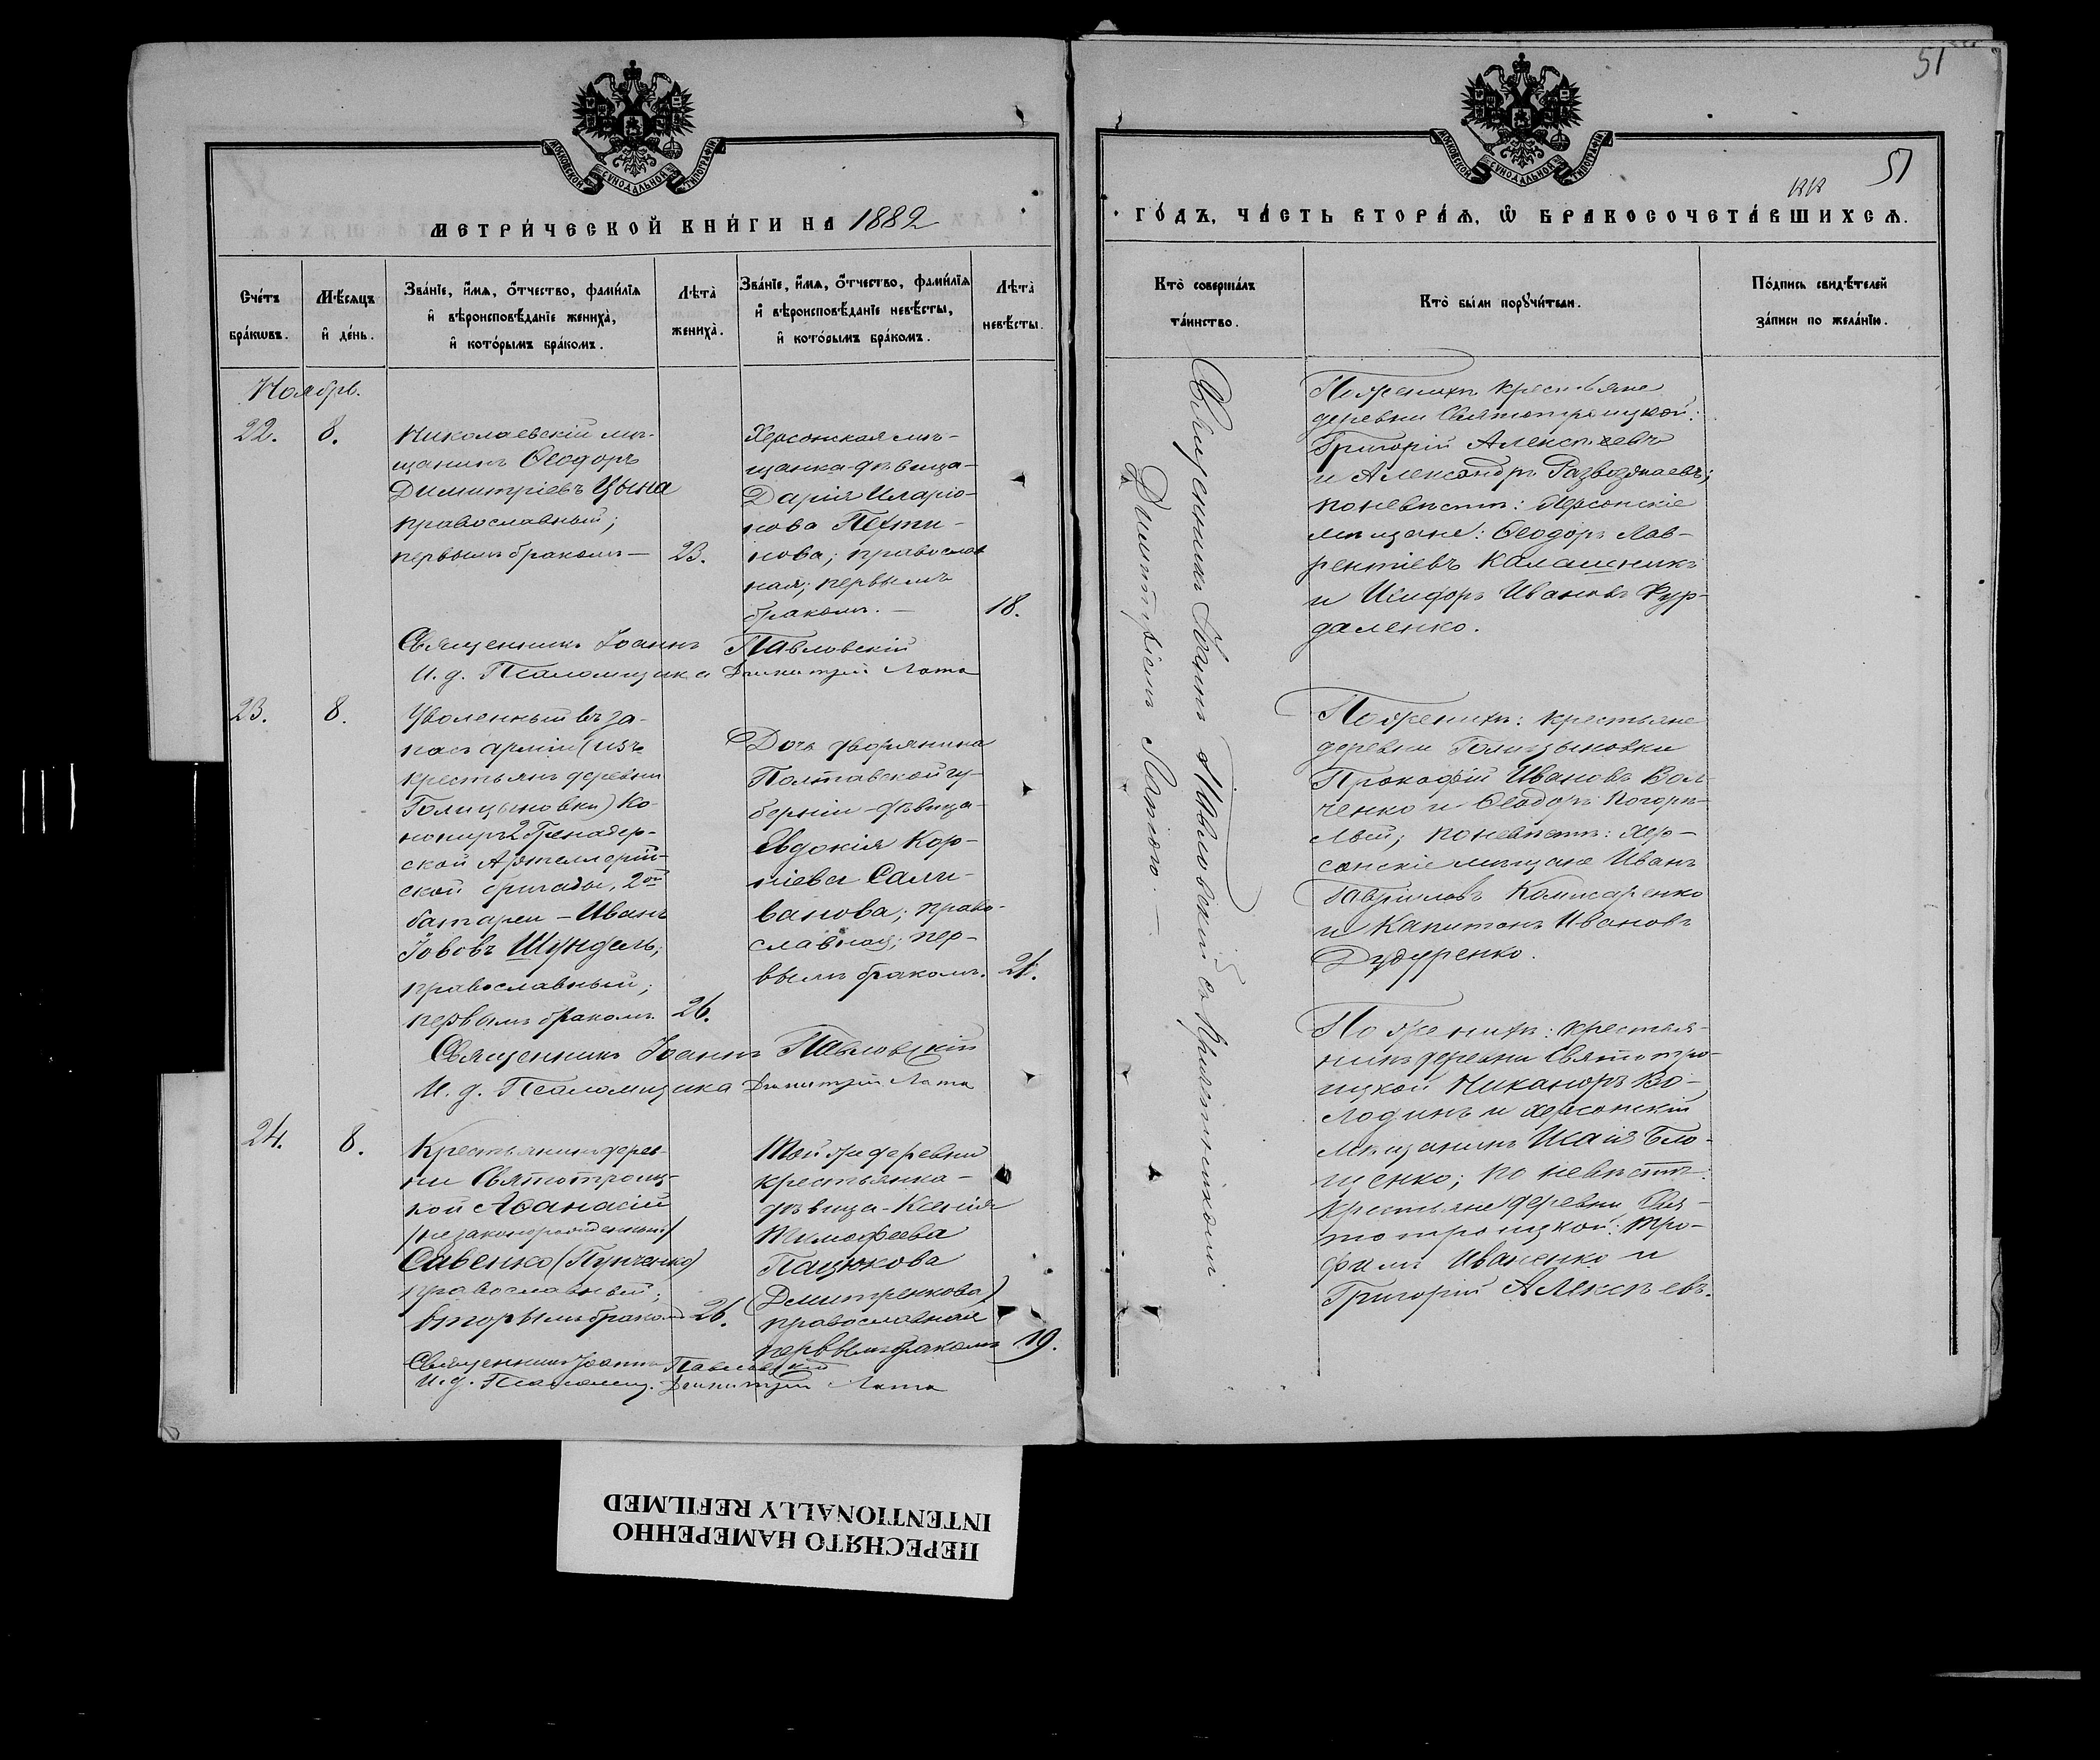 51
МОСКОВСКОЙ СУНОДАЛЬНОЙ ТИПОГРАФІИ
МЕТРИ́ЧЕСКОЙ КНИ́ГИ НА 1882
Сче́тъ бра́кѡвъ.
Мѣ́сяцъ и де́нь.
Зва́нїе, и́мя, о́тчество, фами́лїя
и вѣроисповѣ́данїе жениха̀,
и кото́рымъ бра́комъ.
Лѣта̀ жениха̀.
Зва́нїе, и́мя, о́тчество, фами́лїя
и вѣроисповѣ́данїе невѣ́сты,
и кото́рымъ бра́комъ.
Лѣта̀ невѣ́сты.
Ноябрь.
22.
8.
Николаевскій мѣ-
щанинъ Ѳеодоръ
Димитріевъ Цына
православный;
первымъ бракомъ —
23.
Херсонская мѣ-
щанка-дѣвица-
Дарія Иларіо-
нова
нова; православ
ная; первымъ
бракомъ. —
18.
Священникъ Іоаннъ Павловскій
И. д. Псаломщика Димитрій Лата
23.
8.
Уволенный въ за-
пасъ арміи (изъ
крестьянъ деревни
Голицыновки) Ко-
нониръ 2 Гренадер-
ской Артеллерій-
ской бригады, 2ой
батареи – Иванъ
Іововъ Шундель;
православный;
первымъ бракомъ.
26.
Дочь дворянина
Полтавской гу-
берніи-дѣвица-
Евдокія Кор-
ніева Сали-
ванова; право-
славная; пер-
вымъ бракомъ.
21.
Священникъ Іоаннъ Павловскій
И. д. Псаломщика Димитрій Лата
24.
8.
Крестьянинъ дерев-
ни Святотроиц-
кой Аѳанасій
/незаконорожденный/
Савенко
православный;
вторымъ бракомъ
26.
Той же деревни
крестьянка-
дѣвица-Ксенія
Тимофеева
Пацюкова
(Дмитренкова)
православная
первымъ бракомъ
19.
Священникъ Іоаннъ Павловскій
И. д. Псаломщ. Димитрій Лата
51
МОСКОВСКОЙ СУНОДАЛЬНОЙ ТИПОГРАФІИ
ГО́ДЪ, ЧА́СТЬ ВТОРА́Я, Ѽ БРАКОСОЧЕТА́ВШИХСЯ.
Кто̀ соверша́лъ та́инство.
Кто̀ бы́ли пору́чители.
По́дпись свидѣ́телей
за́писи по жела́нїю.
Священникъ Іоаннъ Павловскій съ Псаломщикомъ
Димитріемъ Латою. —
По женихѣ крестьяне
деревни Святотроицкой:
Григорій Алексѣевъ
и Александръ
по невѣстѣ: Херсонскіе
мѣщане: Ѳеодоръ Лав-
рентіевъ Калашникъ
и Исидоръ Ивановъ Фур-
даленко.
По женихѣ: крестьяне
деревни Голицыновки
Прокофій Ивановъ Вол-
ченко и Ѳеодоръ Погорѣ-
лый; по невѣстѣ: Хер-
сонскіе мѣщане Иванъ
Гавріиловъ Комисаренко
и Капитонъ Ивановъ
По женихѣ: крестья-
нинъ деревни Святотро-
ицкой Никаноръ Во-
лодинъ и Херсонскій
мѣщанинъ Исаія Бло-
щенко; по невѣстѣ:
крестьяне деревни Свя-
тотроицкой: Тро-
фимъ Иваненко и
Григорій Алексѣевъ.
ПЕРЕСНЯТО НАМЕРЕННО
INTENTIONALLY REFILMED